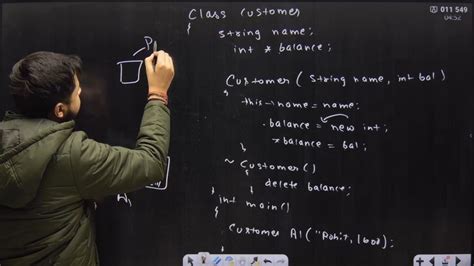 Class Customer
{
string name;
int * balance;
Customer ( string name, int bal)
{
this→name = name;
balance = new int;
* balance = bal;
~ Customer()
{
delete balance;
int main()
{
Customer A1 ("Rohit, 1000);
P
A1
011 549
04:52